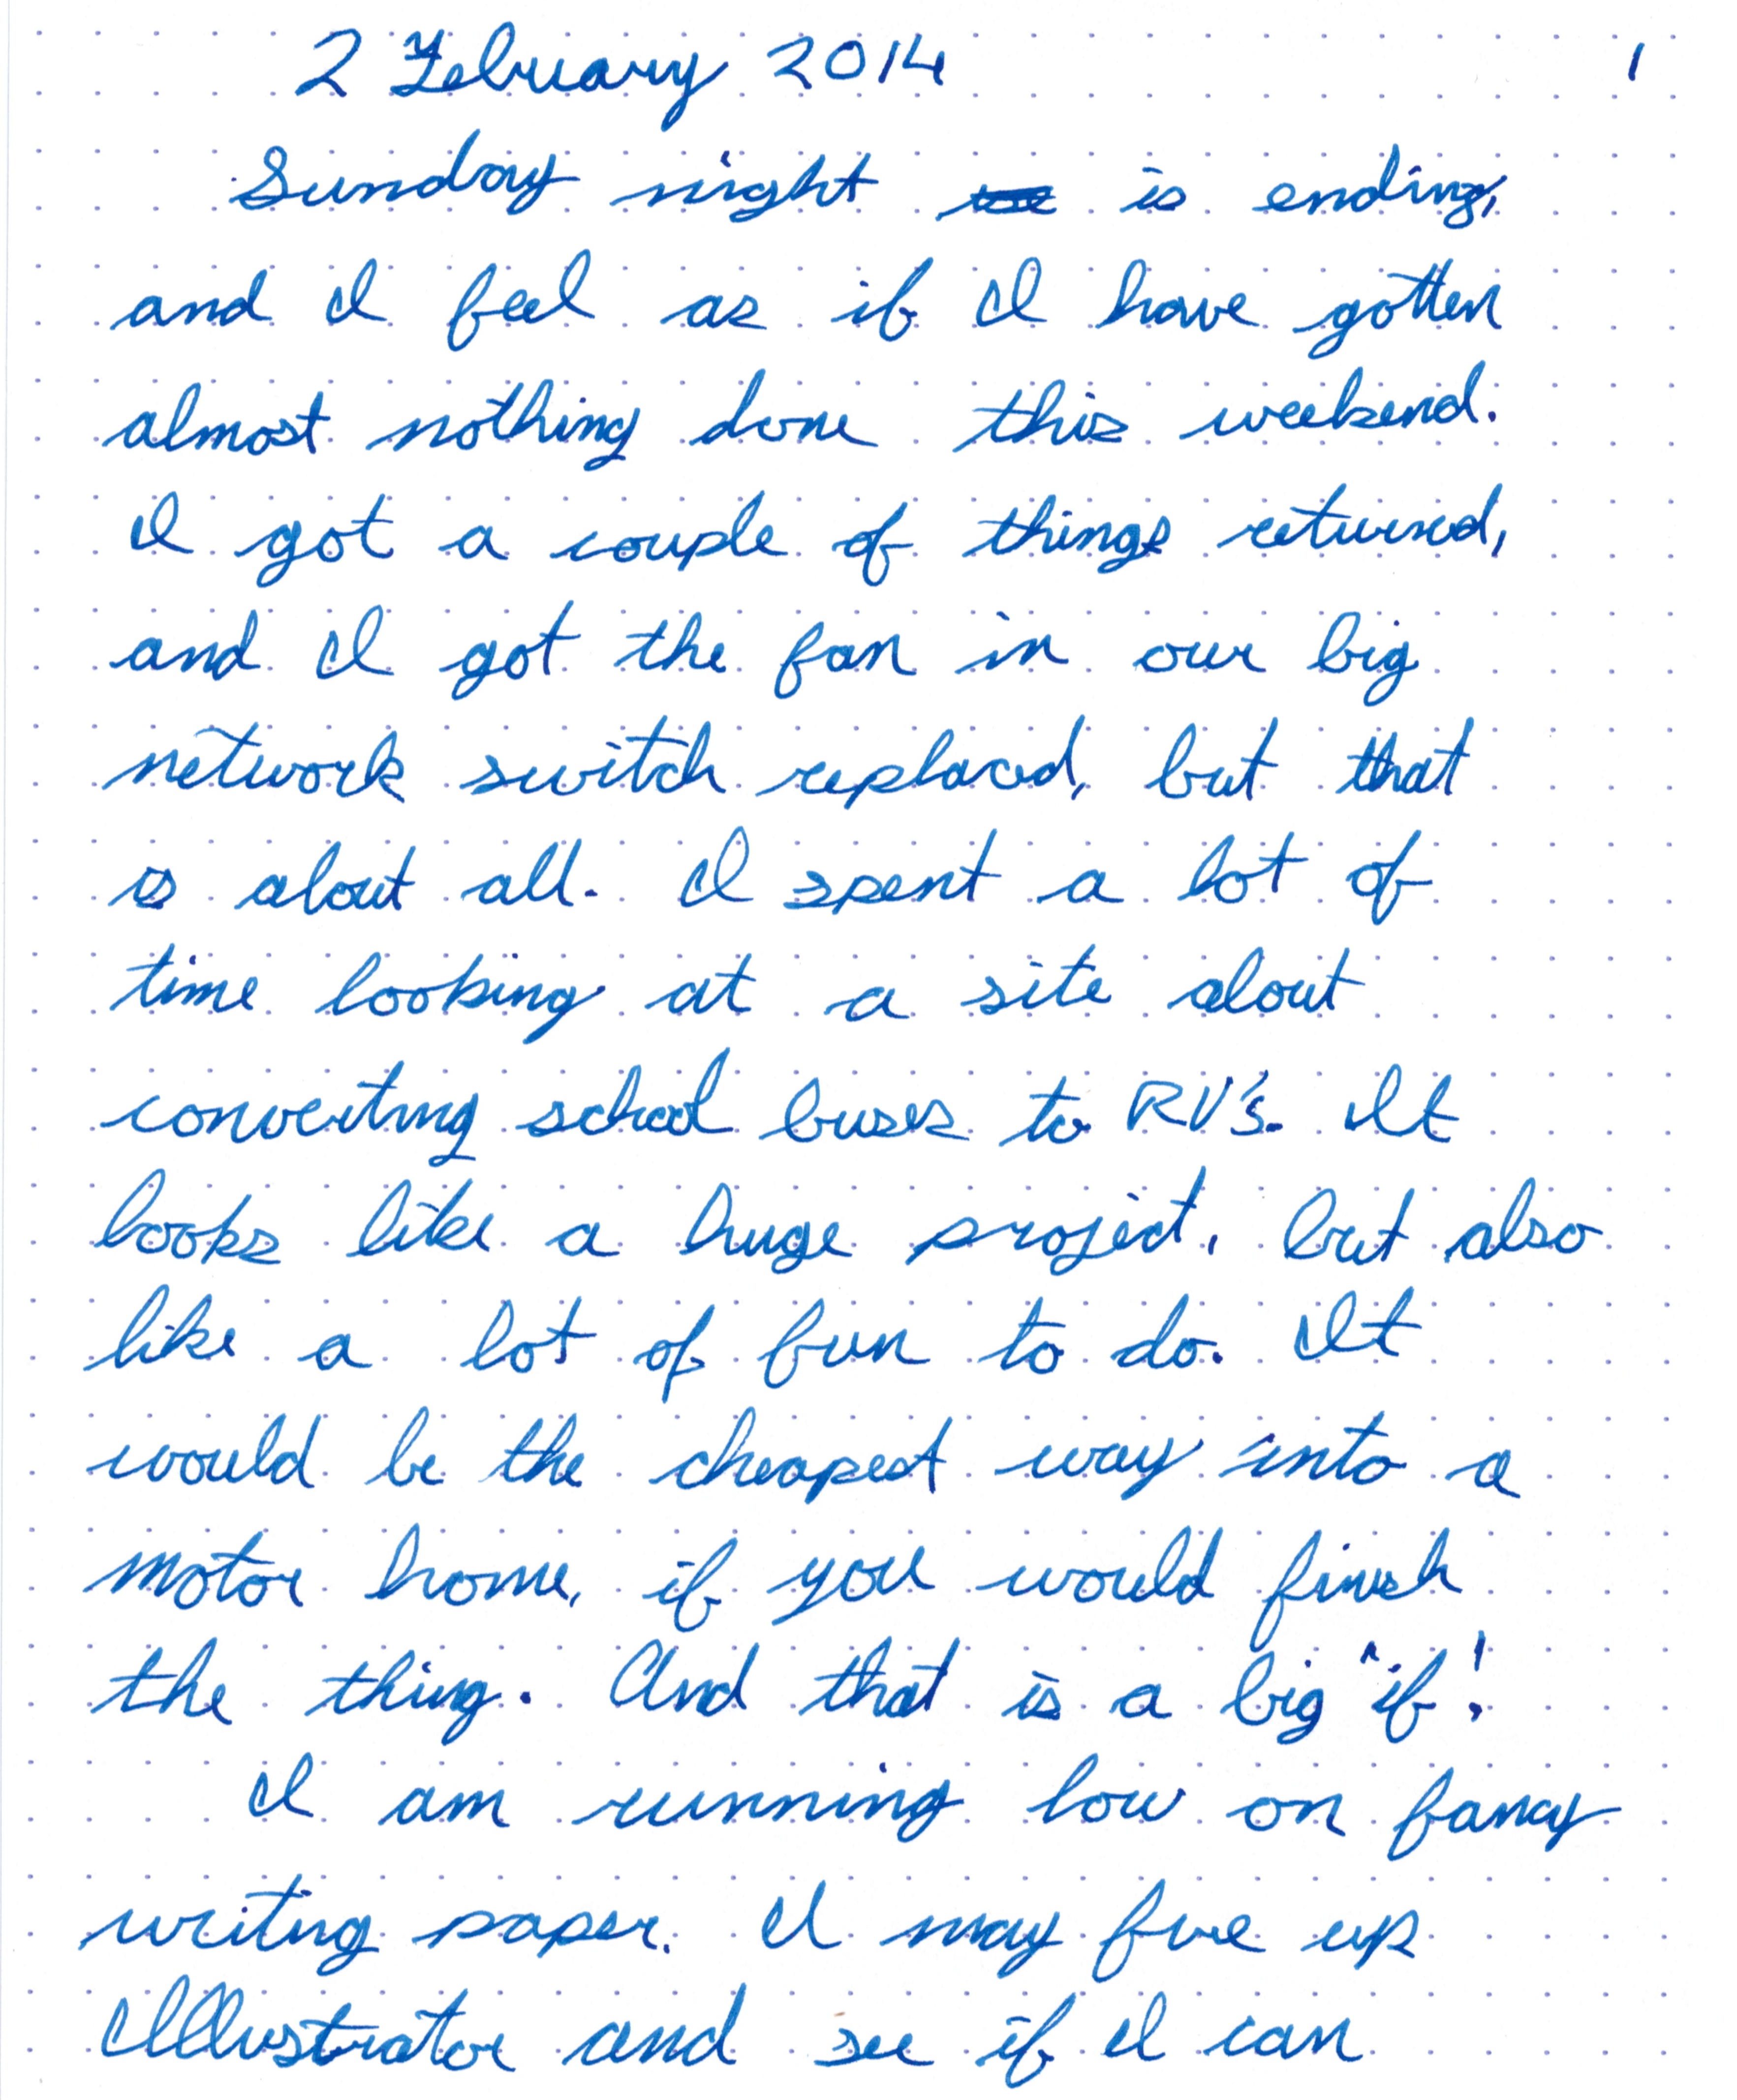 2 Febuary 2014 1
Sunday night is ending,
and I feel as if I have gotten
almost nothing done this weekend.
I got a couple of things returned,
and I got the fan in our big
network switch replaced, but that
is about all. I spent a lot of
time looking at a site about
converting school buses to RV's. It
looks like a huge project, but also
like a lot of fun to do. It
would be the cheapest way into a
motor home, if you would finish
the thing. And that is a big "if"!
I am running low on fancy
writing paper. I may fire up
Illustrator and see if I can